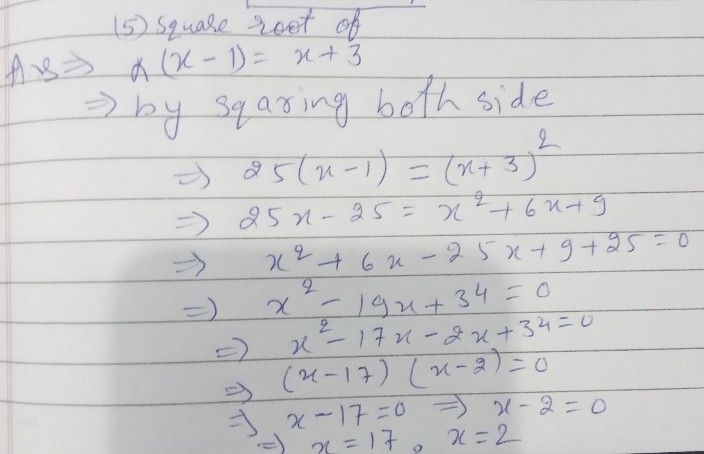 (5) square root of
Ans ⇒ α (x - 1) = x + 3
⇒ by sqaring both side
⇒ 25(x - 1) = (x + 3)²
⇒ 25x - 25 = x² + 6x + 9
⇒ x² + 6x - 25x + 9 + 25 = 0
⇒ x² - 19x + 34 = 0
⇒ x² - 17x - 2x + 34 = 0
⇒ (x - 17) (x - 2) = 0
⇒ x - 17 = 0 ⇒ x - 2 = 0
⇒ x = 17, x = 2